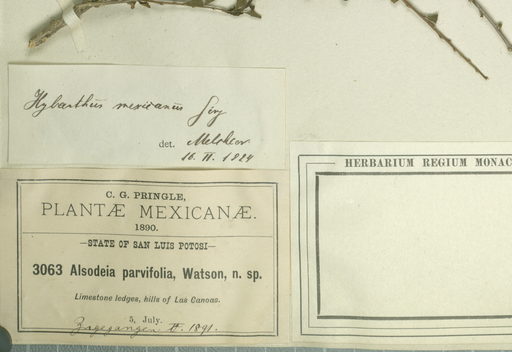 Hybanthus mexicanus Ging
det. Melchior
16. II. 1924
HERBARIUM REGIUM MONAC
C. G. PRINGLE,
PLANTÆ MEXICANÆ.
1890.
—STATE OF SAN LUIS POTOSI—
3063 Alsodeia parvifolia, Watson, n. sp.
Limestone ledges, hills of Las Canoas.
5, July.
Zugegangen II. 1891.